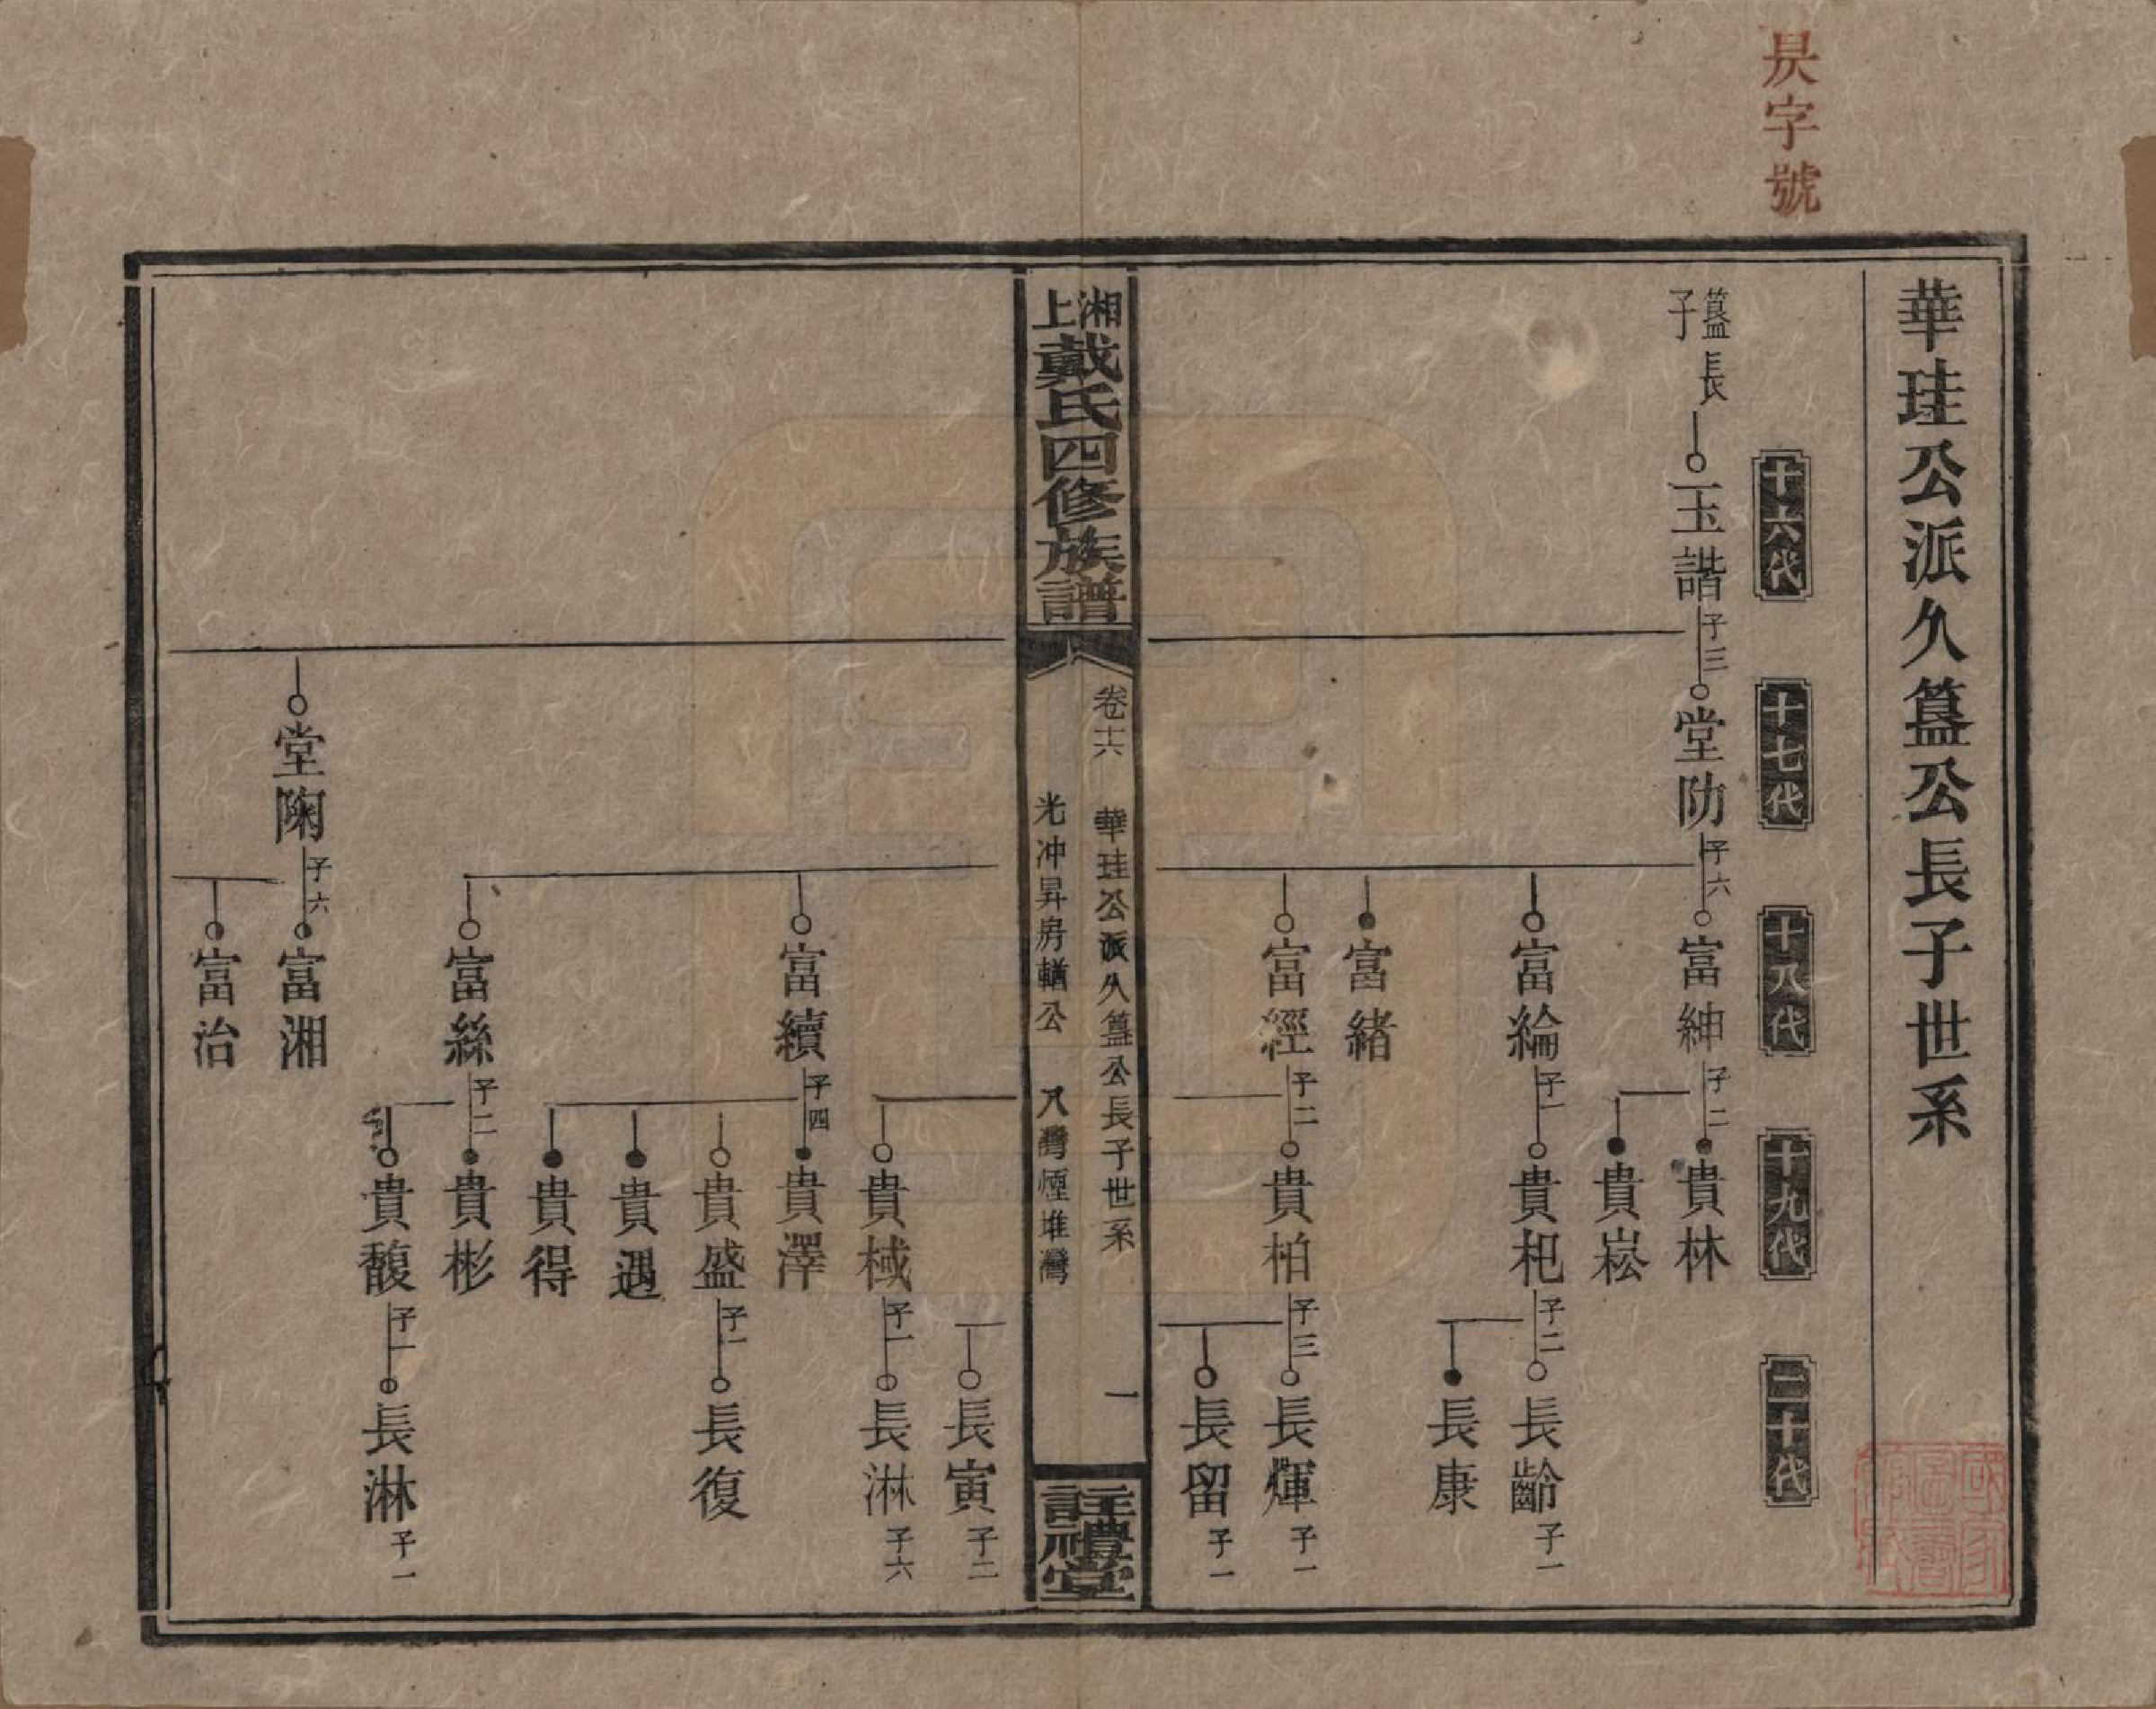 昃字號
華珪公派久簋公長子世系
十六代
十七代
十八代
十九代
二十代
簋長子
玉諧 子三
堂防 子六
富紳 子二
貴林
貴崧
富綸 子一
貴杞 子二
長齡 子一
長康
富緒
富經 子二
貴柏 子三
長煇 子一
長留 子一
湘上戴氏四修族譜
卷十六
華珪公派久簋公長子世系
一
光冲昇房輶公 八灣煙堆灣
註禮堂
長寅 子二
貴棫 子一
長淋 子六
富續 子四
貴澤
貴盛 子一
長復
貴遇
貴得
富絲 子二
貴彬
貴馥 子一
長淋 子一
堂陶 子六
富湘
富治